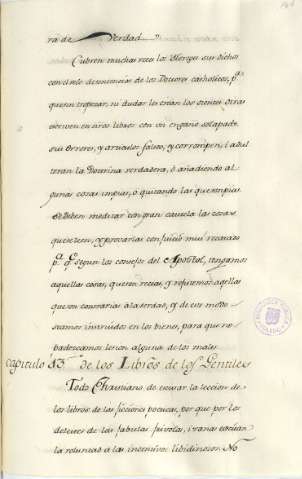 ra de Verdad.
Cubren muchas veces los Hereges sus dichos
con el velo de sentencias de los Doctores catholicos, pª
que sin tropezar, ni dudar les crean los oientes otras
escriven en otros libros con un engaño solapado
sus errores, y articulos falsos, y corrompen, ô adul
teran la Doctrina verdadera, ô añadiendo al
gunas cosas impias, ô quitando las que son pias
Se deben meditar con gran cautela las cosas
que se leen, y provarlas con juicio mui recatado
pª qº segun los consejos del Apostol, tengamos
aquellas cosas, que son rectas, y refutemos aquellas
que son contrarias a la verdad, y de este modo
seamos instruidos en los bienes, para que no
padezcamos lesion alguna de los males
Capitulo 13 de los Libros de los Gentiles
Todo Christiano de escusar la leccion de
los libros de las ficciones poeticas, por que por los
deleites de las fabulas frivolas, i vanas excitan
la voluntad a los incentivos libidinosos. No